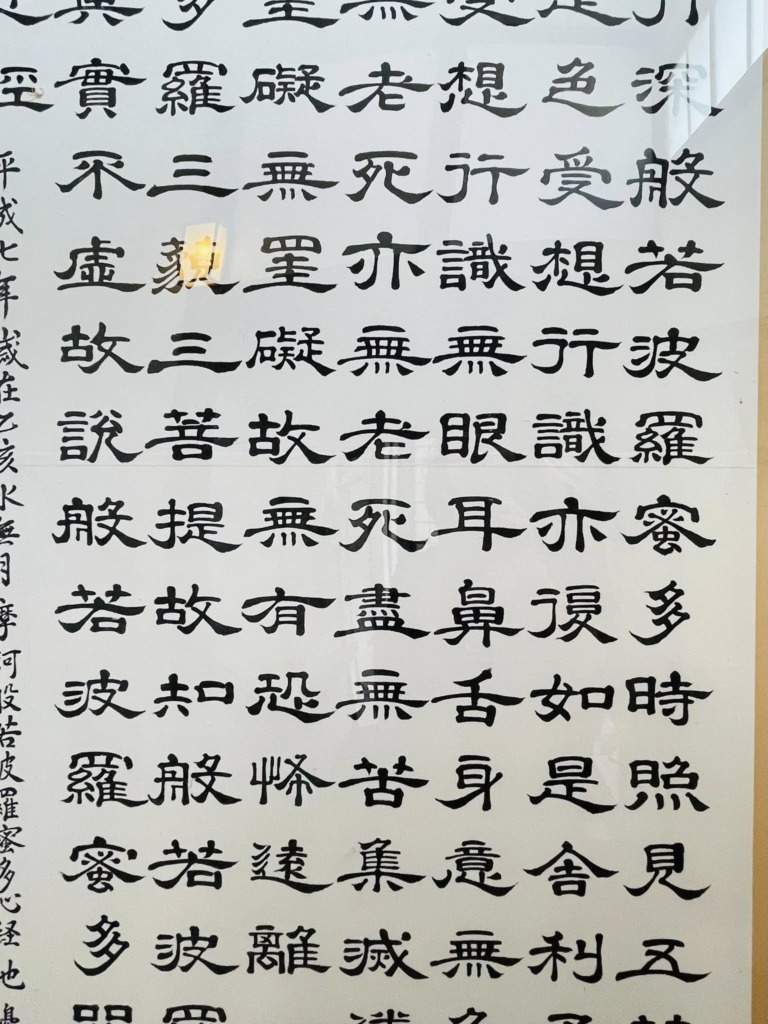 行深般若波羅蜜多時照見五
是色受想行識亦復如是舎利子
受想行識無眼耳鼻舌身意無色
無老死亦無老死盡無苦集滅
罣礙無罣礙故無有恐怖遠離
多羅三藐三菩提故知般若波羅
真實不虛故說般若波羅蜜多
経
平成七年歳在乙亥水無月摩訶般若波羅蜜多心経也